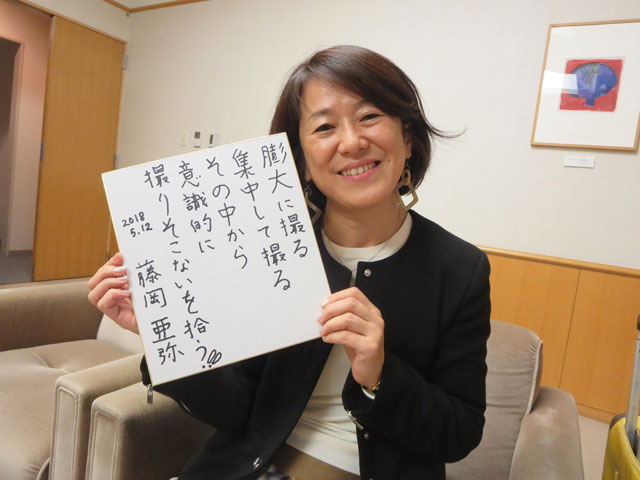 膨大に撮る
集中して撮る
その中から
意識的に
撮りそこないを拾う
2018
5.12
藤岡亜弥